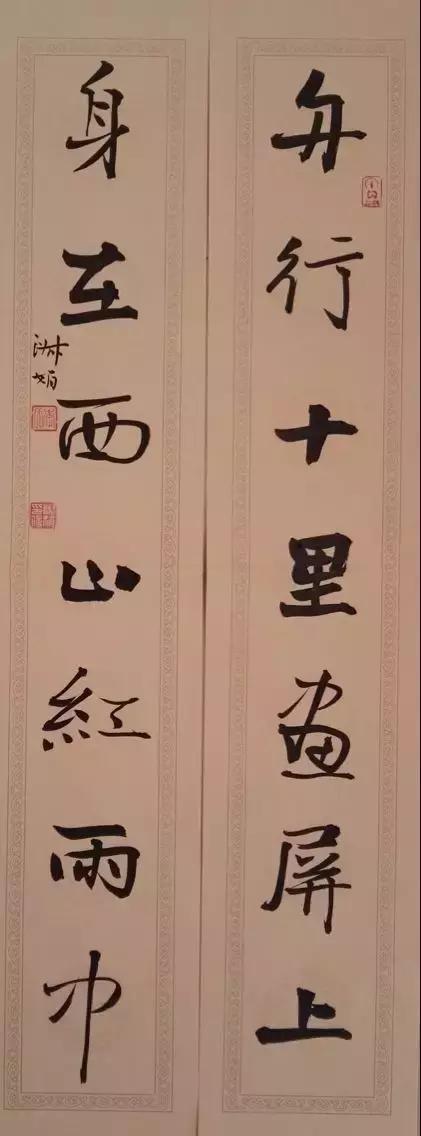 舟行十里畫屏上
身在西山紅雨中